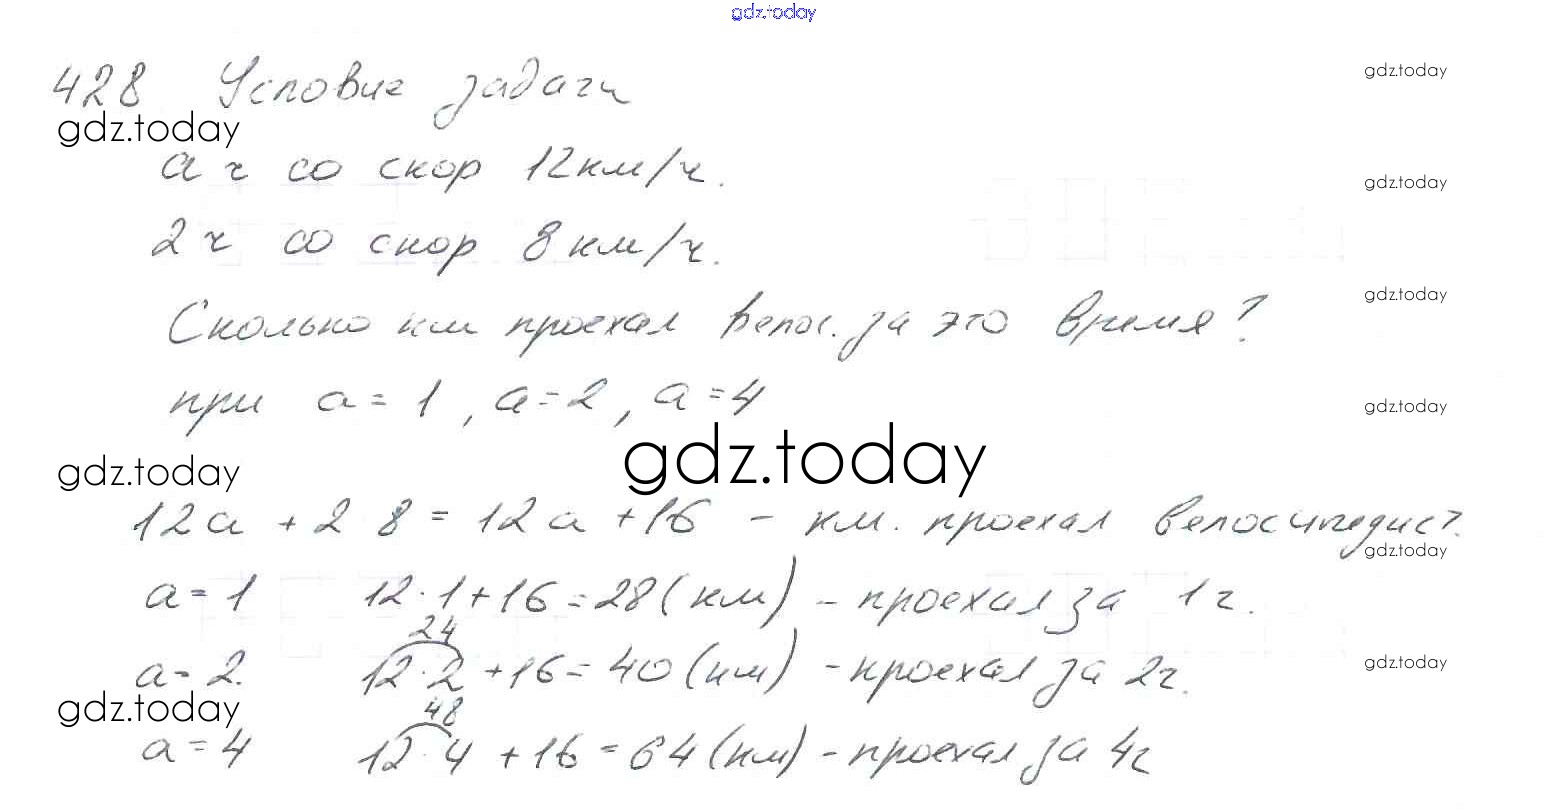 gdz.today
428 Условие задачи
gdz.today
gdz.today
а ч со скор 12 км/ч.
gdz.today
2 ч со скор 8 км/ч.
Сколько км проехал велос. за это время?
gdz.today
при а = 1, а = 2, а = 4
gdz.today
gdz.today
gdz.today
12а + 2 8 = 12а + 16 - км. проехал велосипедист.
gdz.today
а = 1 12·1 + 16 = 28 (км) - проехал за 1 ч.
24
а = 2. 12·2 + 16 = 40 (км) - проехал за 2ч.
gdz.today
gdz.today
48
а = 4 12·4 + 16 = 64 (км) - проехал за 4ч